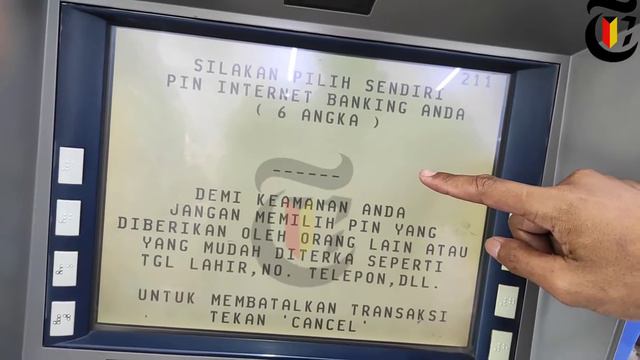 211
SILAKAN PILIH SENDIRI
PIN INTERNET BANKING ANDA
( 6 ANGKA )
------
DEMI KEAMANAN ANDA
JANGAN MEMILIH PIN YANG
DIBERIKAN OLEH ORANG LAIN ATAU
YANG MUDAH DITERKA SEPERTI
TGL LAHIR,NO. TELEPON,DLL.
UNTUK MEMBATALKAN TRANSAKSI
TEKAN 'CANCEL'